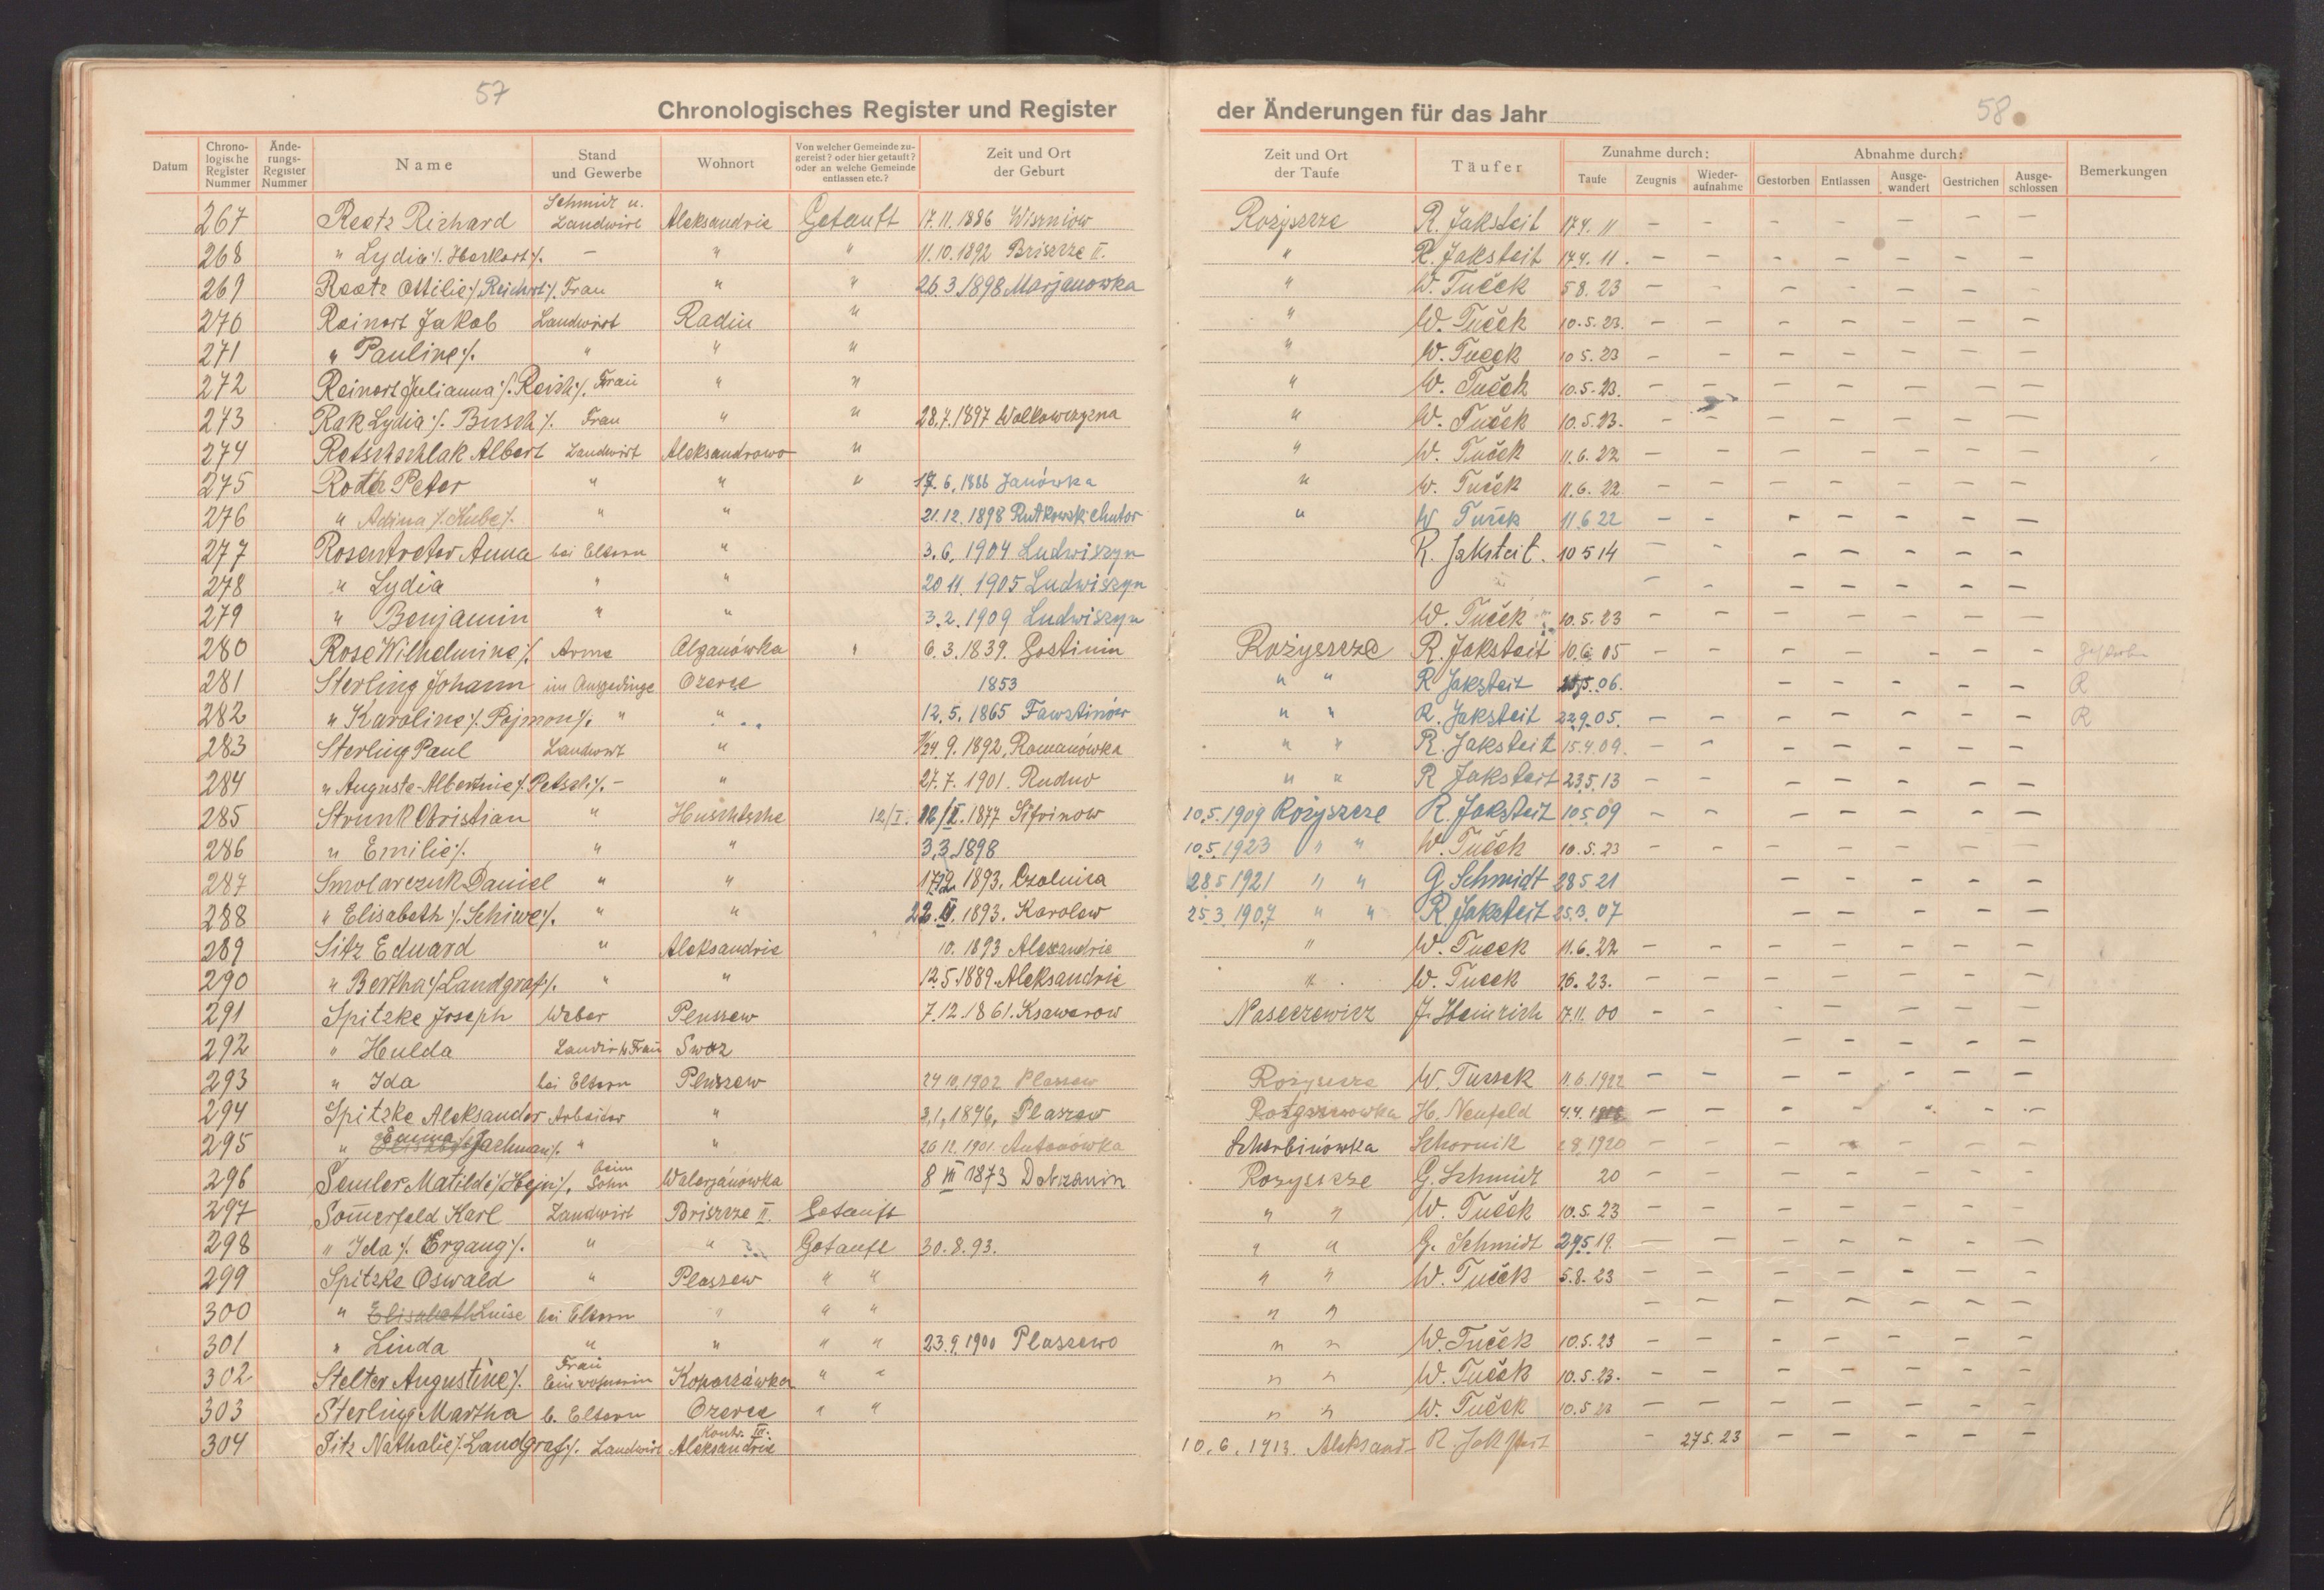 57
58
Chronologisches Register und Register der Änderungen für das Jahr
Datum | Chrono-logische Register Nummer | Ände-rungs-Register Nummer | Name | Stand und Gewerbe | Wohnort | Von welcher Gemeinde zu-gereist? oder hier getauft? oder an welche Gemeinde entlassen etc.? | Zeit und Ort der Geburt | Zeit und Ort der Taufe | Täufer | Zunahme durch: Taufe | Zeugnis | Wieder-aufnahme | Abnahme durch: Gestorben | Entlassen | Ausge-wandert | Gestrichen | Ausge-schlossen | Bemerkungen
267 Raatz Richard Schmidt u. Landwirt Aleksandrie Getauft 17.11.1886 Wiszniow Rożyszcze R. Jaksteit 17.4.11 — — — — — — —
268 " Lydia ·/. Herkert ·/. — " " 11.10.1892 Briszcze II. " R. Jaksteit 17.4.11. — — — — — — —
269 Raatz Ottilie ·/. Reichert ·/. Frau " " 26.3.1898 Marjanowka " W. Tuček 5 8. 23 — — — — — — —
270 Reinert Jakob Landwirt Radin " " W. Tuček 10.5.23. — — — — — — —
271 " Pauline ·/. " " " " W. Tuček 10 5. 23 — — — — — — —
272 Reinert Julianna ·/. Reich ·/. Frau " " " W. Tuček 10.5.23. — — — — — — —
273 Rak Lydia ·/. Busch ·/. Frau " " 28.7.1897 Wolkowczyzna " W. Tuček 10.5.23. — — — — — — —
274 Retschschlak Albert Landwirt Aleksandrowo " " W. Tuček 11.6.22 — — — — — — —
275 Roda Peter " " " 17.6.1886 Janówka " W. Tuček 11.6.22. — — — — — — —
276 " Adina ·/. Kube ·/. " " 21.12.1898 Rutkowski Chutor " W. Tuček 11.6 22 — — — — — — —
277 Rosentreter Anna bei Eltern " 3.6.1904 Ludwiszyn R. Jaksteit. 10 5 14 — — — — — — —
278 " Lydia " " 20 11. 1905 Ludwiszyn — — — — — — —
279 " Benjamin " " 3.2.1909 Ludwiszyn W. Tuček 10.5.23 — — — — — — —
280 Rose Wilhelmine ·/. Arme Olganówka " 6.3.1839. Gostinin Rożyszcze R. Jaksteit 10.6.05 — — — — — — — Gestorben
281 Sterling Johann im Ausgedinge Ozerce 1853 " " R Jaksteit 5.06. — — — — — R
282 " Karoline ·/. Pojmon ·/. " " 12.5.1865 Fawstinów " " R. Jaksteit 22.9.05. — — — — — — — R
283 Sterling Paul Landwirt " 1/24 9. 1892. Romanówka " " R. Jaksteit 15.4.09. — — — — — — —
284 " Auguste-Albertine ·/. Petsch ·/. — " 27.7.1901. Rudno " " R Jaksteit 23.5.13 — — — — — — —
285 Strunk Christian " Huschtscha 12/I. /I. 1877 Sifrinow 10.5.1909 Rożyszcze R. Jaksteit 10.5 09 — — — — — — —
286 " Emilie ·/. " " 3.3.1898 10.5.1923 " " W. Tuček 10.5.23 — — — — — — —
287 Smolarczuk Daniel " " 17.2. 1893. Czolnica 28 5 1921 " " G Schmidt 28 5 21 — — — — —
288 " Elisabeth ·/. Schiwe ·/. " " 22. 1893. Karolew 25.3.1907 " " R. Jaksteit 25.3.07 — — — — —
289 Sitz Eduard " Aleksandrie 10. 1893 Alexandrie " W. Tucek 11.6.22 — — — — — — —
290 " Bertha ·/. Landgraf ·/. " " 12.5.1889. Aleksandrie " W. Tucek 23. — — — — — — —
291 Spitzke Joseph Weber Plusszew 7.12.1861. Ksawerow Naseczewicz J. Heinrich 17.11.00 — — — — — — —
292 " Hulda Landwirts Frau Swoz — — — — —
293 " Ida bei Eltern Plusszew 24 10.1902 Plaszew Rożyszcze W. Tuczek 11.6.1922 — — — — — — —
294 Spitzke Aleksander Arbeiter " 3.1.1896. Plaszew H. Neufeld 4.4. — — — — — — —
295 " Emma Jachman ·/. " " 26 12.1901 Antonówka Scherbinówka Schornik 2 8.1920 — — — — — — —
296 Semler Matilde ·/. Hein ·/. beim Sohn Walerjanówka 8 III 1873 Rożyszcze G. Schmidt 20 — — — — — — —
297 Somerfeld Karl Landwirt Briszcze II. Getauft " " W. Tuček 10.5.23 — — — — — — —
298 " Ida ·/. Ergang ·/. " " Getauft 30.8.93. " " G. Schmidt 29.5.19. — — — — — — —
299 Spitzke Oswald " Plaszew " " " " W. Tuček 5.8.23 — — — — — — —
300 " Elisabeth Luise bei Eltern " " " " " — — — — — — —
301 " Linda " " " " 23.9.1900 Plaszewo " " W. Tuček 10.5.23 — — — — — — —
302 Stelter Augustine ·/. Frau Einwohnerin Koparzówka " " " " W. Tuček 10.5.23. — — — — — — —
303 Sterling Martha b. Eltern Ozerce " " " " W. Tuček 10.5 23 — — — — — — —
304 Sitz Nathalie ·/. Landgraf ·/. Landwirt Aleksandrie 10.6.1913. Aleksand- R. Jaksteit — 27.5.23 — — — — —